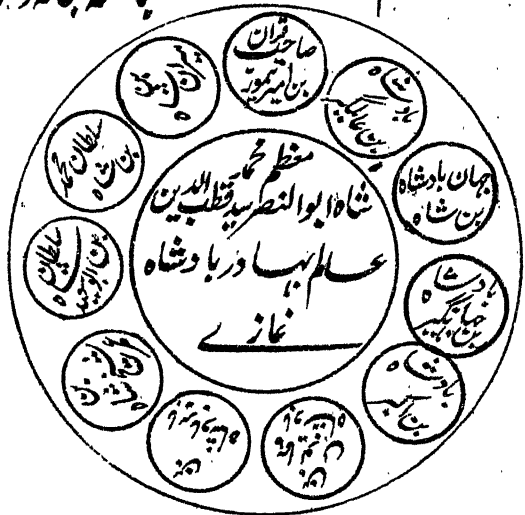 معظم محمد
شاہ ابوالنصر سید قطب الدین
عالم بہادر بادشاہ
غازے
صاحب قران
بن امیر تیمور
بادشاہ
بن عالمگیر
جہان بادشاہ
بن شاہ
بادشاہ
بن جہانگیر
بادشاہ
بن اکبر
بن
بن
سلطان
بن ابو سعید
سلطان محمد
بن شاہ
میران شاہ
بن